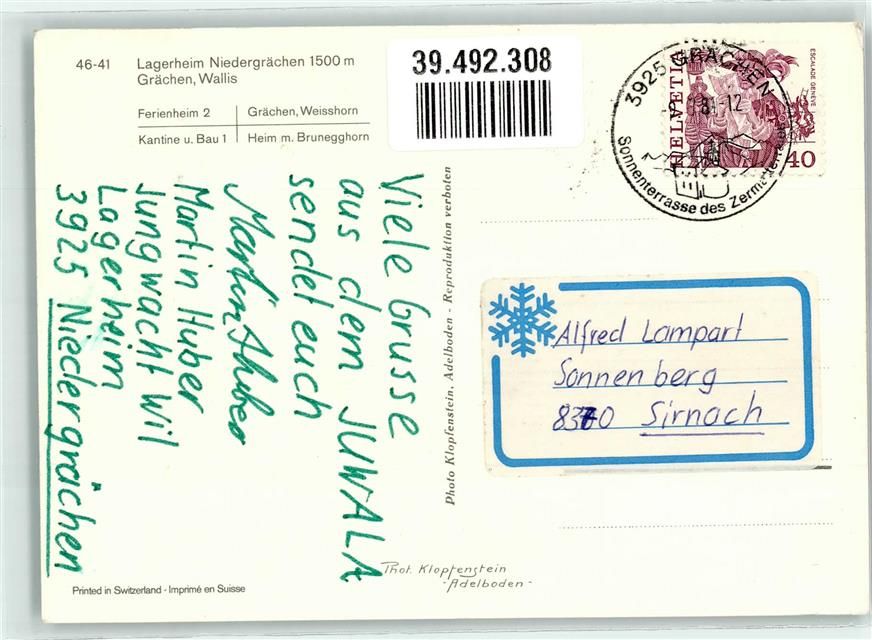 46-41 Lagerheim Niedergrächen 1500 m
Grächen, Wallis
Ferienheim 2 Grächen, Weisshorn
Kantine u. Bau 1 Heim m. Brunegghorn
39.492.308
3925 GRÄCHEN
81-12
Sonnenterrasse des
HELVETIA
ESCALADE GENÈVE
40
Viele Grüsse
aus dem JUWALA
sendet euch
Martin Huber
Martin Huber
Jungwacht Wil
Lagerheim
3925 Niedergrächen
Photo Klopfenstein, Adelboden - Reproduktion verboten
Alfred Lampart
Sonnenberg
8370 Sirnach
Phot. Klopfenstein
- Adelboden -
Printed in Switzerland - Imprimé en Suisse